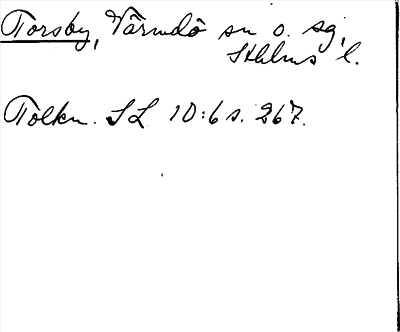 Torsby, Värmdö sn o. sg,
Sthlms l.
Tolkn. SL 10:6 s. 267.